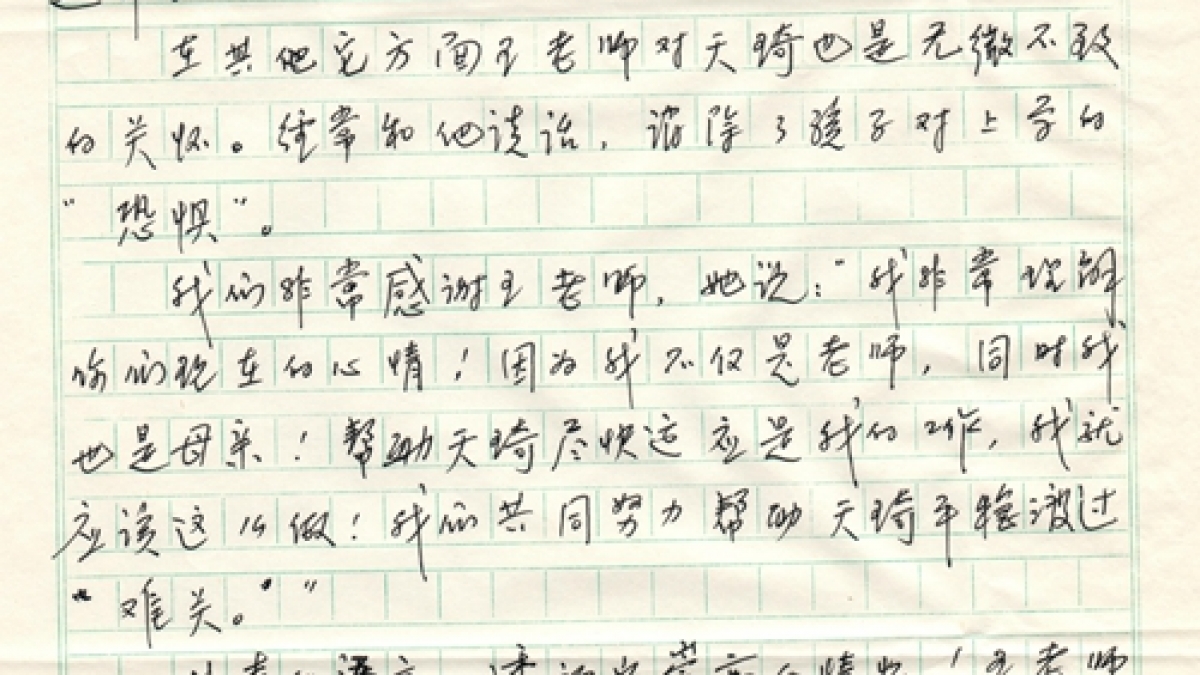 在其他它方面王老师对天琦也是无微不致
的关怀。经常和他谈话，消除了孩子对上学的
“恐惧”。
我们非常感谢王老师，她说：“我非常理解
你们现在的心情！因为我不仅是老师，同时我
也是母亲！帮助天琦尽快适应是我的工作，我就
应该这么做！我们共同努力帮助天琦平稳渡过
“难关。””
王老师